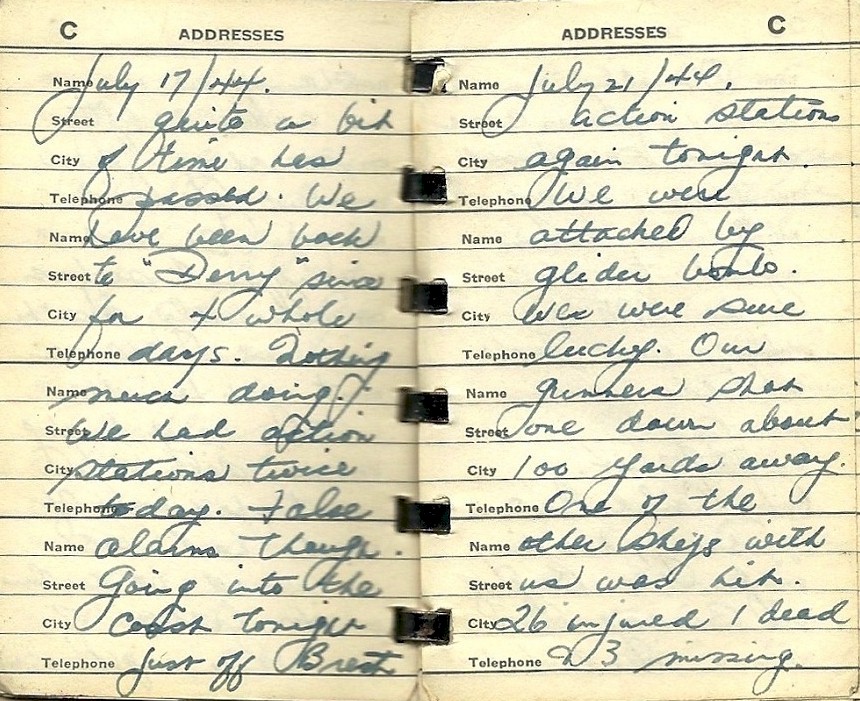 C ADDRESSES
Name July 17/44.
Street quite a bit
City of time has
Telephone passed. We
Name have been back
Street to "Derry" since
City for 4 whole
Telephone days. Nothing
Name much doing.
Street We had action
City stations twice
Telephone today. False
Name alarms though.
Street Going into the
City coast tonight
Telephone just off Brest
ADDRESSES C
Name July 21/44.
Street action stations
City again tonight.
Telephone We were
Name attacked by
Street glider bombs.
City We were sure
Telephone lucky. Our
Name gunners shot
Street one down about
City 100 yards away.
Telephone One of the
Name other ships with
Street us was hit.
City 26 injured 1 dead
Telephone 3 missing.